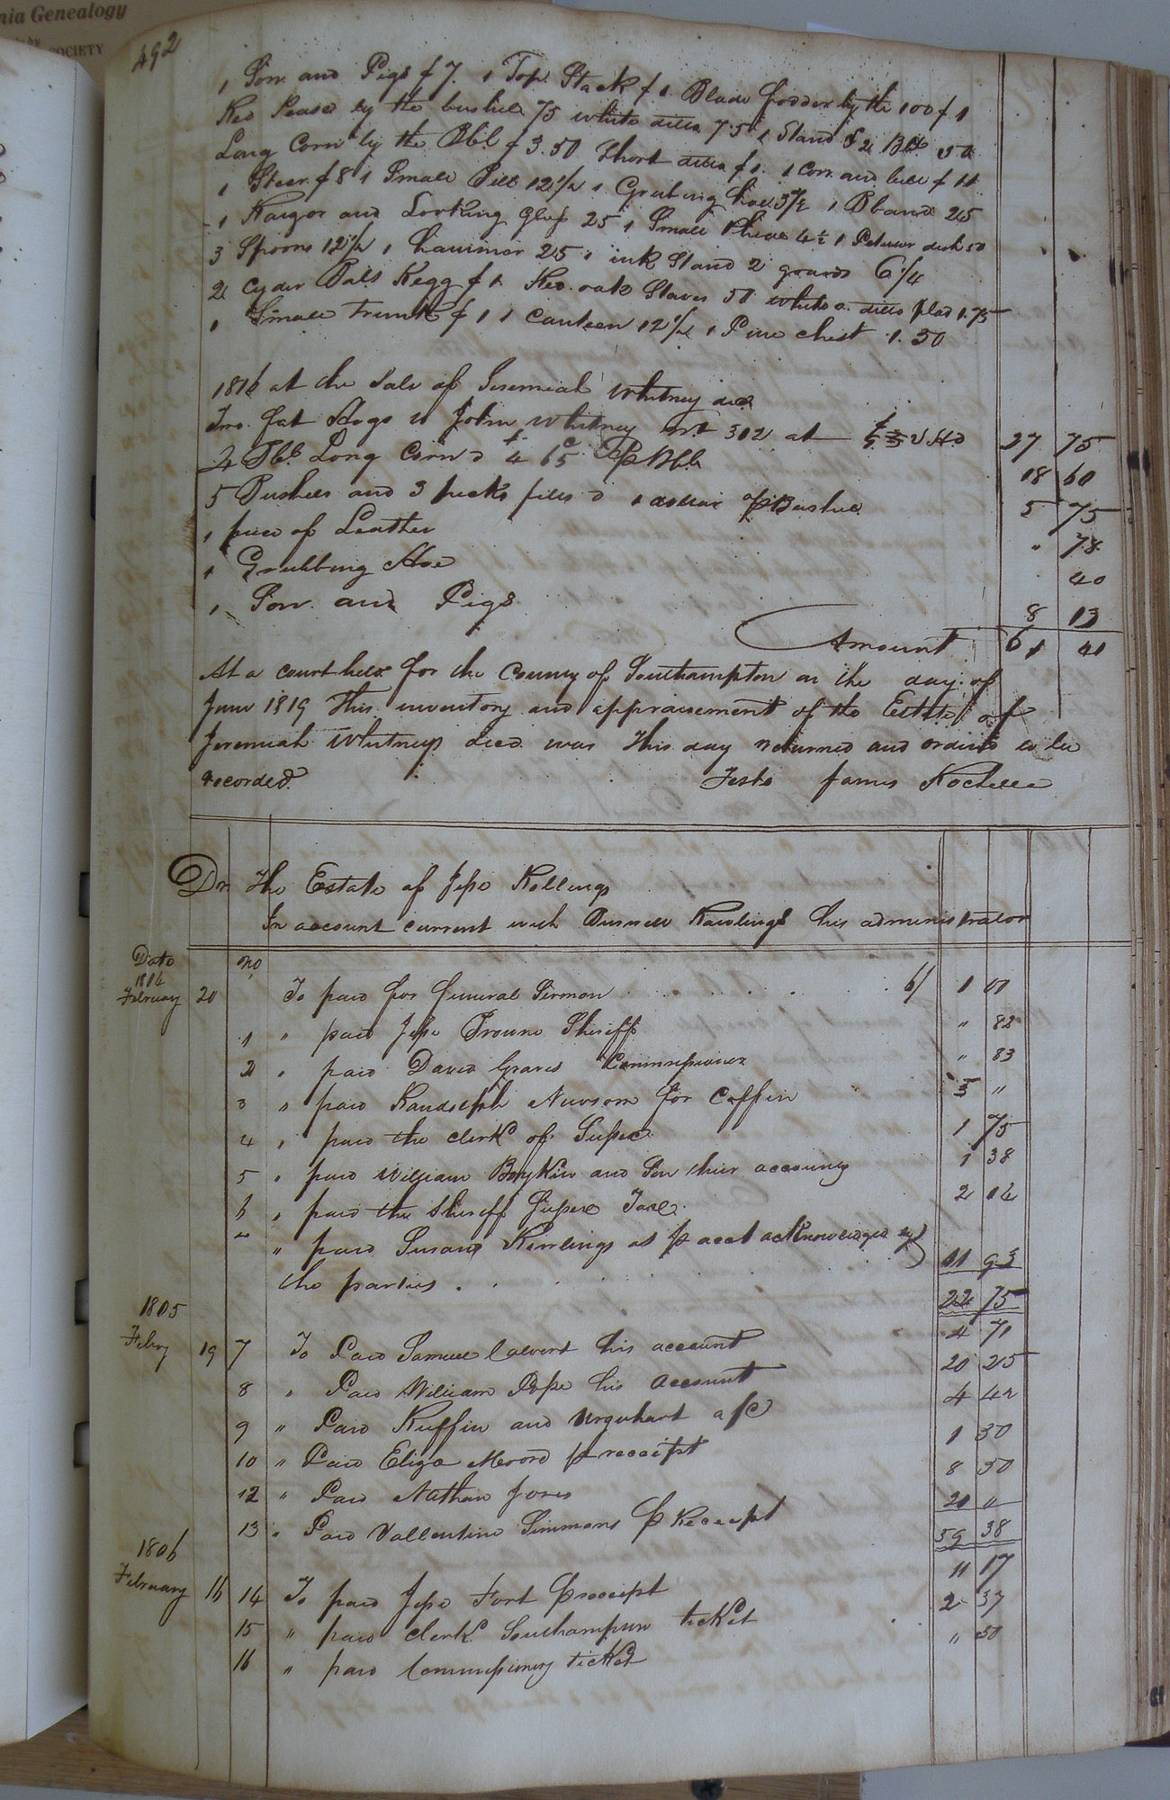 nia Genealogy
SOCIETY
492
1 Sow and Pigs $7. 1 Top Stack $1 Blade fodder by the 100 $1
Red Pease by the bushell 75 white ditto 75 1 Stand & 2 Bls 50
Long Corn by the Bbl $3.50 Short ditto $1. 1 Cow and
1 Steer $8 1 Small 12½ 1 Grubing hoe 37½ 1 25
1 Raizor and Looking Glass 25 1 Small 1 Pewter dish 50
3 Spoons 12½ 1 hammer 25 1 ink Stand 2 goards 6¼
2 Cyder Bbls Kegg $1 Red oak Staves 50 white o. ditto 1.75
1 Small Trunk $1 1 Canteen 12½ 1 Pine chest 1.50
1816 at the Sale of Jeremiah Whitney decd
Two fat Hogs to John Whitney wt 302 at 27 75
4 Bbls Long Corn @ $4 65c p Bbl 18 60
5 Bushels and 3 pecks peas @ 1 dollar p Bushel 5 75
1 piece of Leather " 78
1 Grubbing Hoe 40
1 Sow and Pigs 8 13
Amount 61 41
At a court held for the County of Southampton on the day of
June 1819 This inventory and appraisement of the Estate of
Jeremiah Whitney decd was this day returned and ordered to be
recorded. Teste James Rochelle
Dr. The Estate of Jesse Rollings
In account current with Burwell Rawlings his administrator
Date no
February 20 To paid for funeral Sermon 6/ 1 01
1 " paid Jesse Browne Sheriff " 82
2 " paid David Graves Commissioner " 83
3 " paid Randolph Newsom for Coffin 3 "
4 " paid the clerk of Sussex 1 75
5 " paid William Boykin and Son their account 1 38
6 " paid the Sheriff Sussex Tax 2
" paid Susan Rawlings as p acct acknowledged by
the parties . 11 93
22 75
1805
Feby 19 7 To Paid Samuel Calvert his account 4 71
8 " Paid William Pope his account 20 25
9 " Paid Ruffin and Urquhart a/c 4 42
10 " Paid Eliza Moore p receipt 1 50
12 " Paid Nathan Jones 8 50
13 " Paid Vallentine Simmons p Receipt 20 "
59 38
1806
February 16 14 To paid Jesse Fort p receipt 11 17
15 " paid clerk Southampton ticket 2 37
16 " paid Commissioners ticket " 50